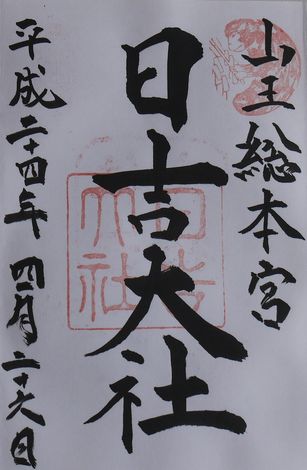 山王総本宮
日吉大社
平成二十四年四月二十六日
日吉大社